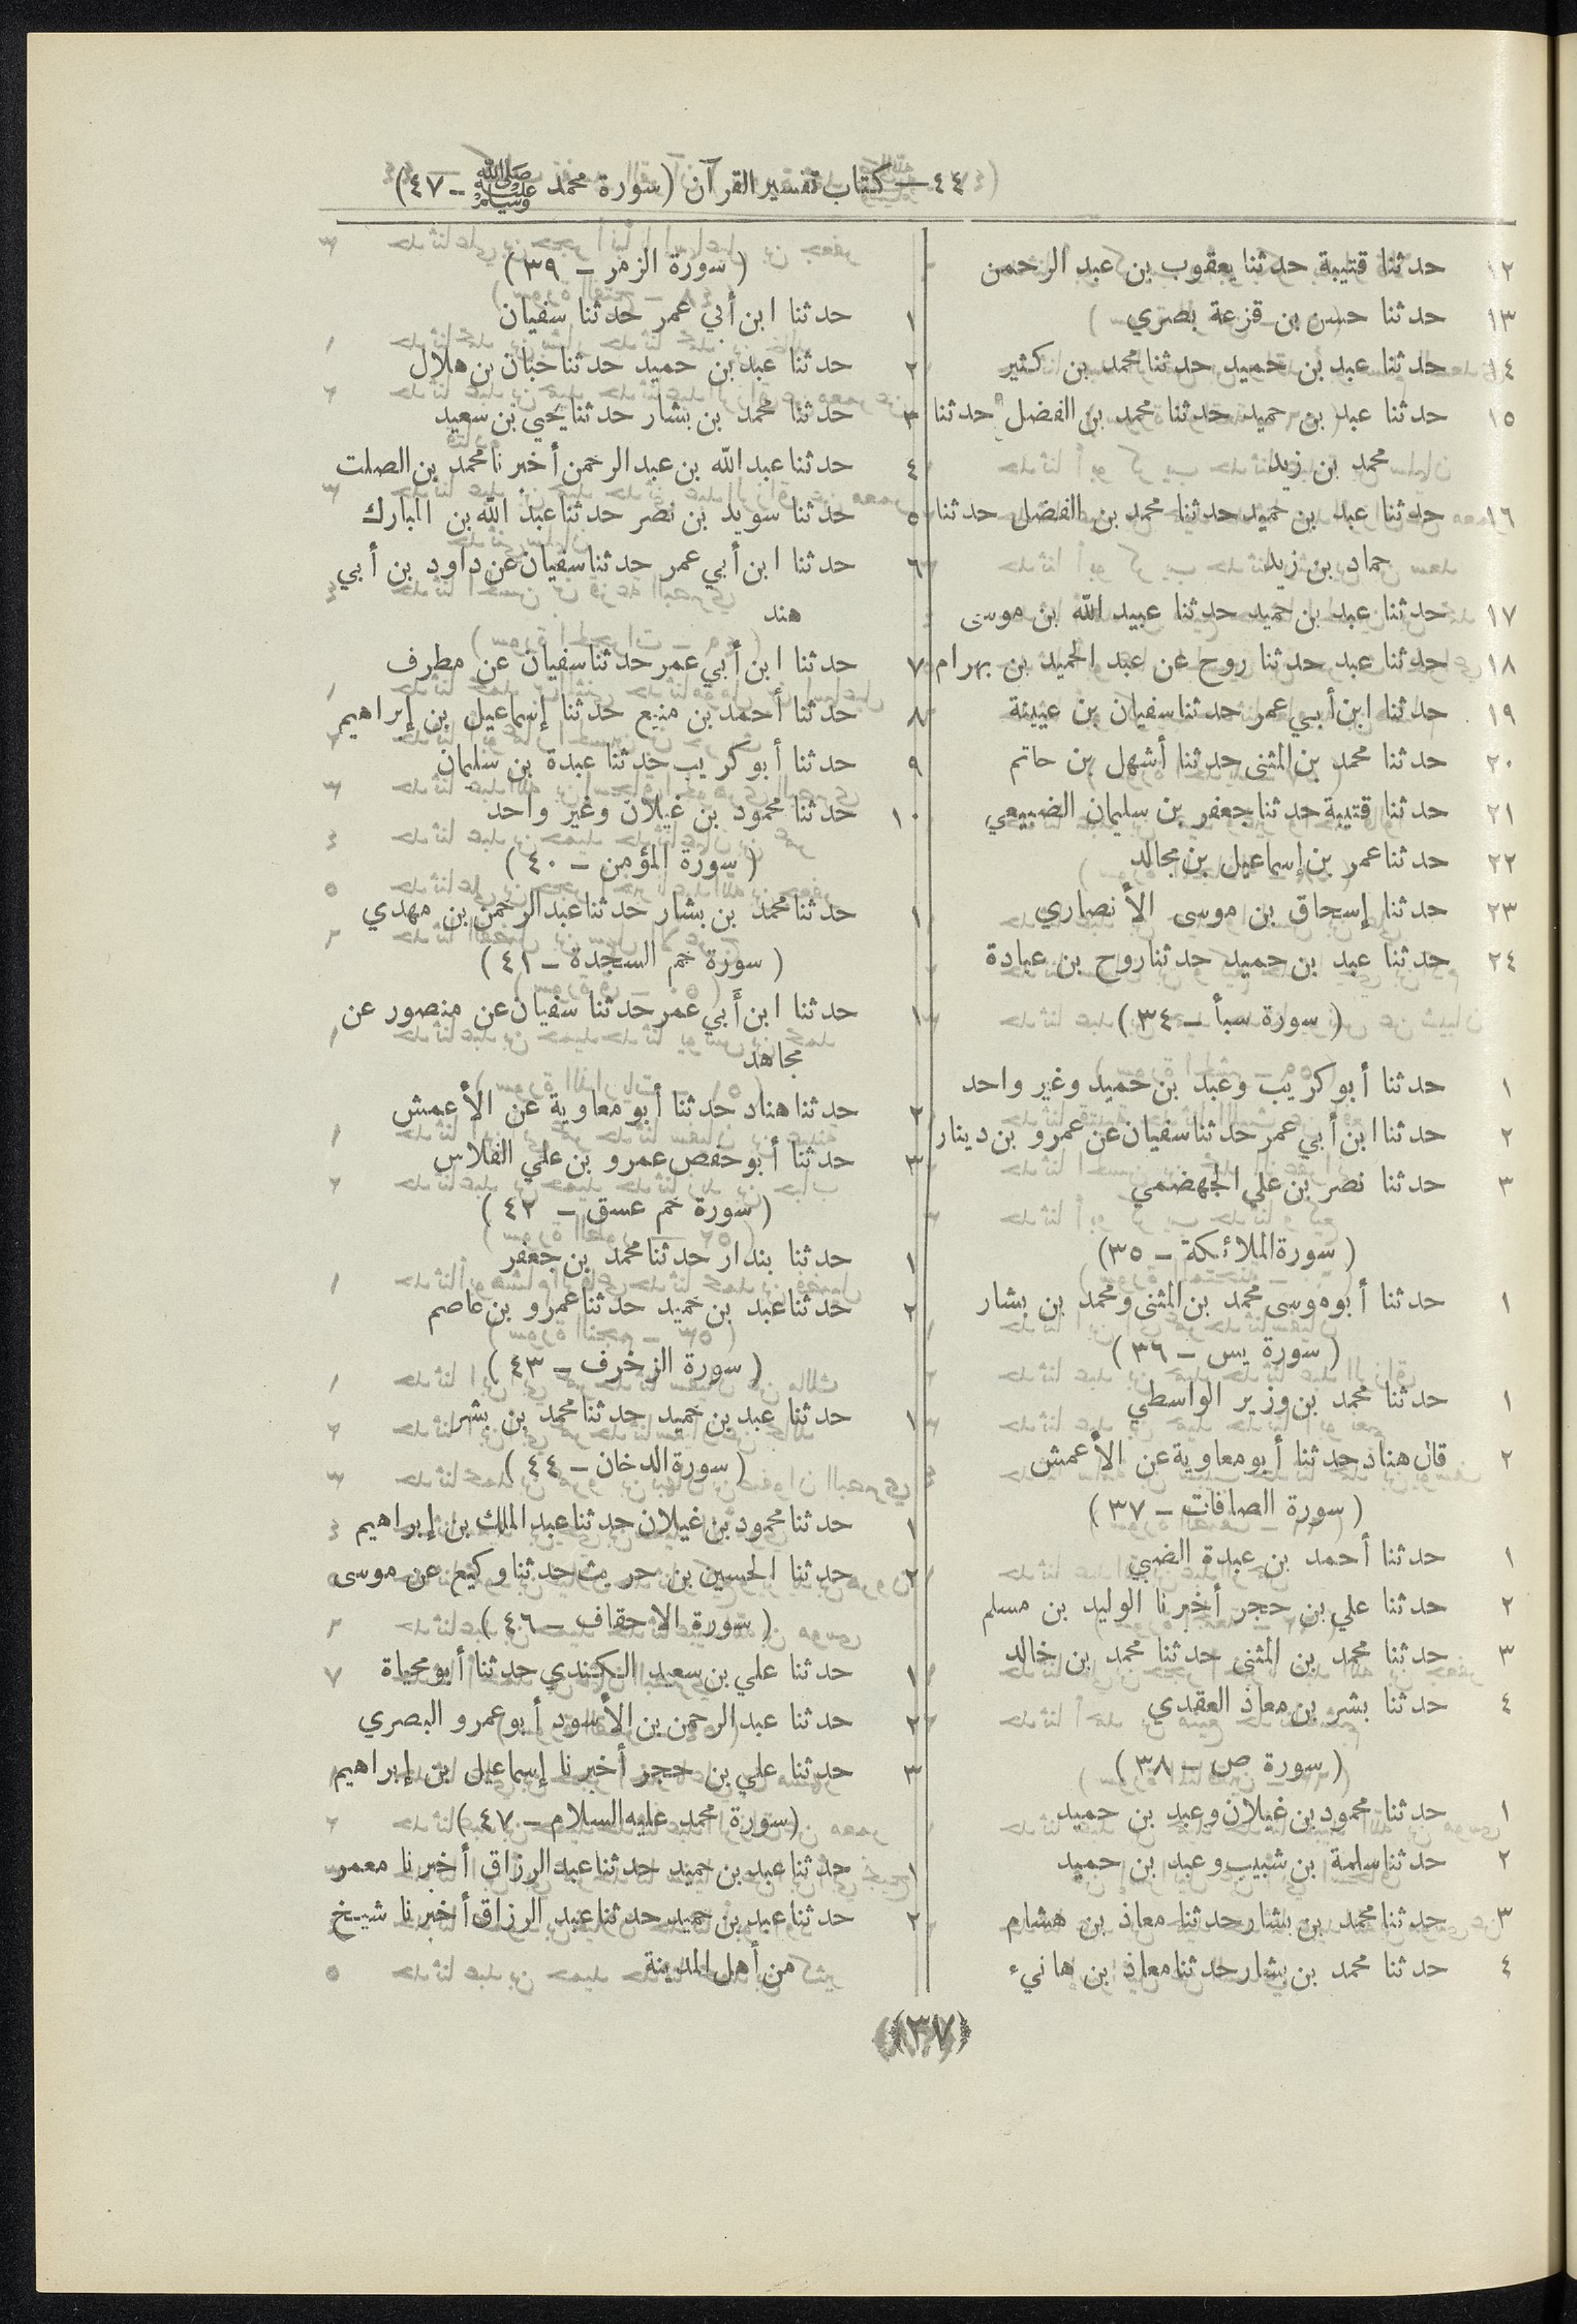 ٤٤ — كتاب تفسير القرآن (سورة محمد ﷺ - ٤٧)
١٢ حدثنا قتيبة حدثنا يعقوب بن عبد الرحمن
١٣ حدثنا حسن بن قزعة بصري
١٤ حدثنا عبد بن حميد حدثنا محمد بن كثير
١٥ حدثنا عبد بن حميد حدثنا محمد بن الفضل حدثنا
محمد بن زيد
١٦ حدثنا عبد بن حميد حدثنا محمد بن الفضل حدثنا
حماد بن زيد
١٧ حدثنا عبد بن حميد حدثنا عبيد الله بن موسى
١٨ حدثنا عبد حدثنا روح عن عبد الحميد بن بهرام
١٩ حدثنا ابن أبي عمر حدثنا سفيان بن عيينة
٢٠ حدثنا محمد بن المثنى حدثنا أشهل بن حاتم
٢١ حدثنا قتيبة حدثنا جعفر بن سليمان الضبيعي
٢٢ حدثنا عمر بن إسماعيل بن مجالد
٢٣ حدثنا إسحاق بن موسى الأنصاري
٢٤ حدثنا عبد بن حميد حدثنا روح بن عبادة
(سورة سبأ - ٣٤)
١ حدثنا أبو كريب وعبد بن حميد وغير واحد
٢ حدثنا ابن أبي عمر حدثنا سفيان عن عمرو بن دينار
٣ حدثنا نصر بن علي الجهضمي
(سورة الملائكة - ٣٥)
١ حدثنا أبو موسى محمد بن المثنى ومحمد بن بشار
(سورة يس - ٣٦)
١ حدثنا محمد بن وزير الواسطي
٢ قال هناد حدثنا أبو معاوية عن الأعمش
(سورة الصافات - ٣٧)
١ حدثنا أحمد بن عبدة الضبي
٢ حدثنا علي بن حجر أخبرنا الوليد بن مسلم
٣ حدثنا محمد بن المثنى حدثنا محمد بن خالد
٤ حدثنا بشر بن معاذ العقدي
(سورة ص - ٣٨)
١ حدثنا محمود بن غيلان وعبد بن حميد
٢ حدثنا سلمة بن شبيب وعبد بن حميد
٣ حدثنا محمد بن بشار حدثنا معاذ بن هشام
٤ حدثنا محمد بن بشار حدثنا معاذ بن هانيء
(سورة الزمر - ٣٩)
١ حدثنا ابن أبي عمر حدثنا سفيان
٢ حدثنا عبد بن حميد حدثنا حبان بن هلال
٣ حدثنا محمد بن بشار حدثنا يحيى بن سعيد
٤ حدثنا عبد الله بن عبد الرحمن أخبرنا محمد بن الصلت
٥ حدثنا سويد بن نصر حدثنا عبد الله بن المبارك
٦ حدثنا ابن أبي عمر حدثنا سفيان عن داود بن أبي
هند
٧ حدثنا ابن أبي عمر حدثنا سفيان عن مطرف
٨ حدثنا أحمد بن منيع حدثنا إسماعيل بن إبراهيم
٩ حدثنا أبو كريب حدثنا عبدة بن سليمان
١٠ حدثنا محمود بن غيلان وغير واحد
(سورة المؤمن - ٤٠)
١ حدثنا محمد بن بشار حدثنا عبد الرحمن بن مهدي
(سورة حم السجدة - ٤١)
١ حدثنا ابن أبي عمر حدثنا سفيان عن منصور عن
مجاهد
٢ حدثنا هناد حدثنا أبو معاوية عن الأعمش
٣ حدثنا أبو حفص عمرو بن علي الفلاس
(سورة حم عسق - ٤٢)
١ حدثنا بندار حدثنا محمد بن جعفر
٢ حدثنا عبد بن حميد حدثنا عمرو بن عاصم
(سورة الزخرف - ٤٣)
١ حدثنا عبد بن حميد حدثنا محمد بن بشر
(سورة الدخان - ٤٤)
١ حدثنا محمود بن غيلان حدثنا عبد الملك بن إبراهيم
٢ حدثنا الحسين بن حريث حدثنا وكيع عن موسى
(سورة الاحقاف - ٤٦)
١ حدثنا علي بن سعيد الكندي حدثنا أبو محياة
٢ حدثنا عبد الرحمن بن الأسود أبو عمرو البصري
٣ حدثنا علي بن حجر أخبرنا إسماعيل بن إبراهيم
(سورة محمد عليه السلام - ٤٧)
١ حدثنا عبد بن حميد حدثنا عبد الرزاق أخبرنا معمر
٢ حدثنا عبد بن حميد حدثنا عبد الرزاق أخبرنا شيخ
من أهل المدينة
(٣٧)